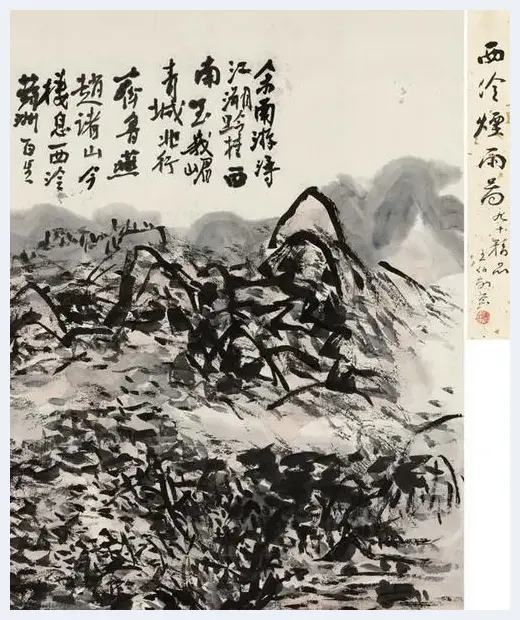 余南游潯
江湖黔桂西
南至峨嵋
青城北行
齊魯燕
趙諸山今
棲息西泠
洲
西泠煙雨圖
九十精品
王伯敏